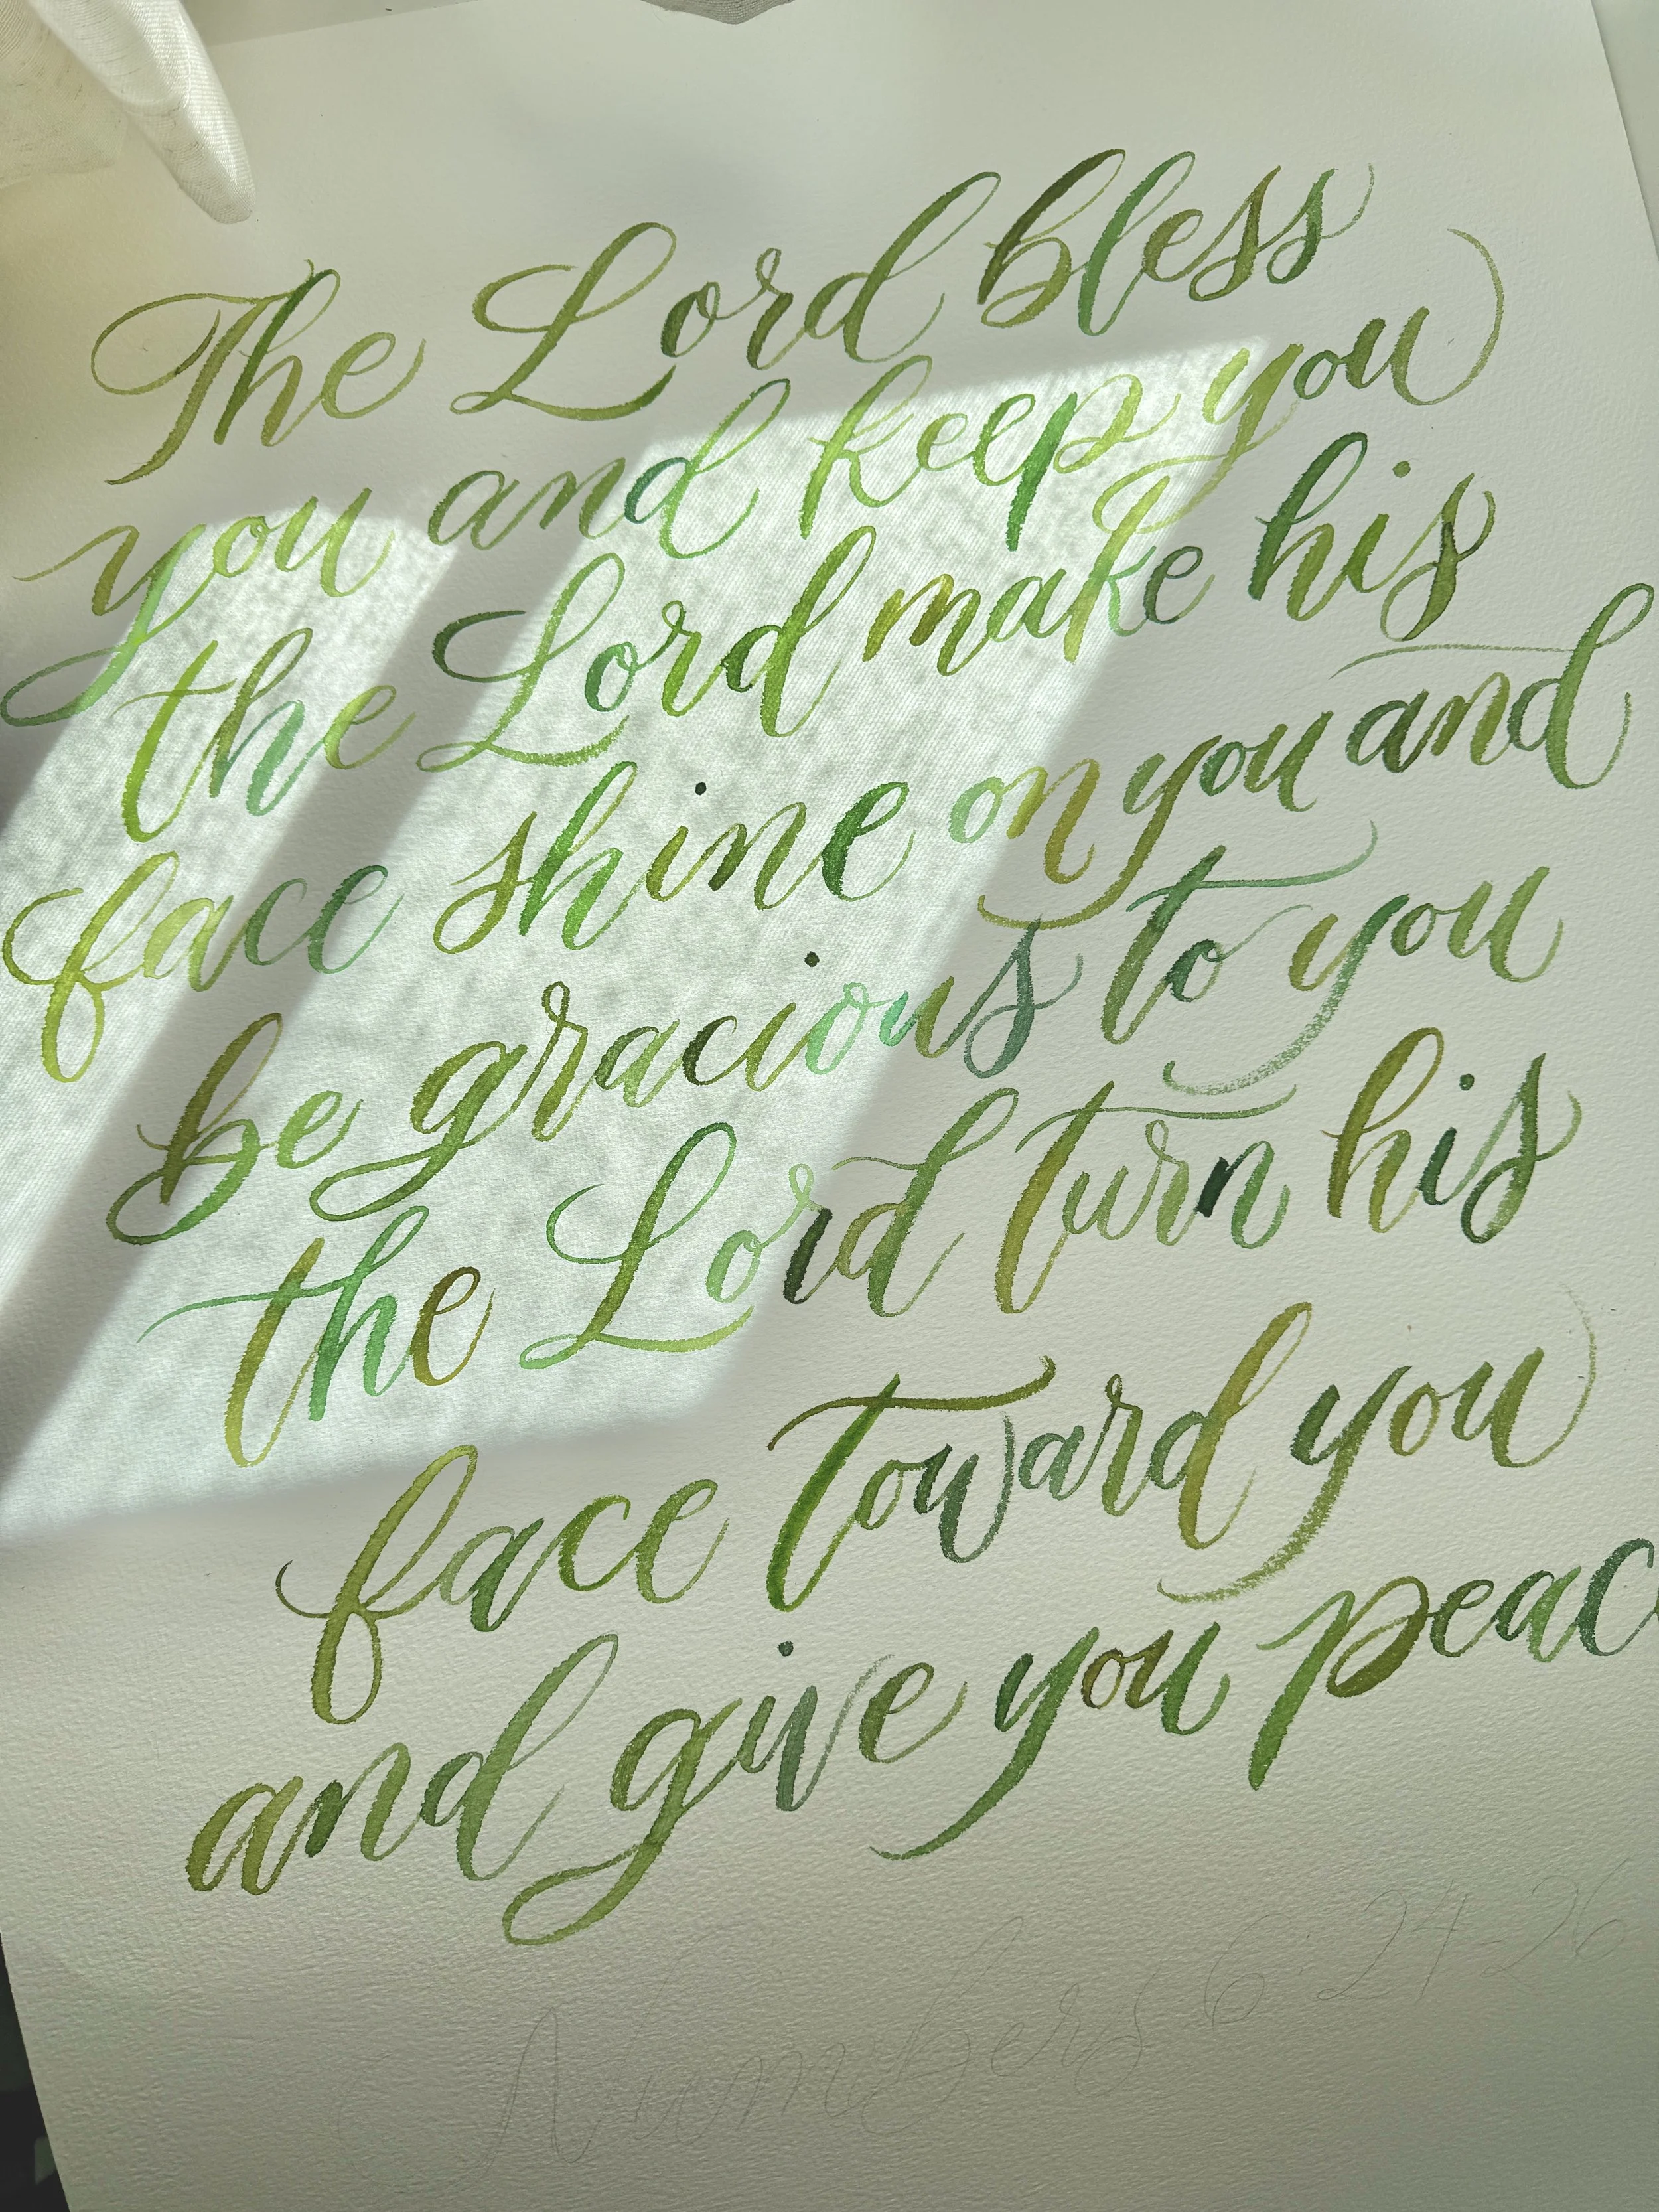 The Lord bless
you and keep you
the Lord make his
face shine on you and
be gracious to you
the Lord turn his
face toward you
and give you peac
Numbers 6:24-26